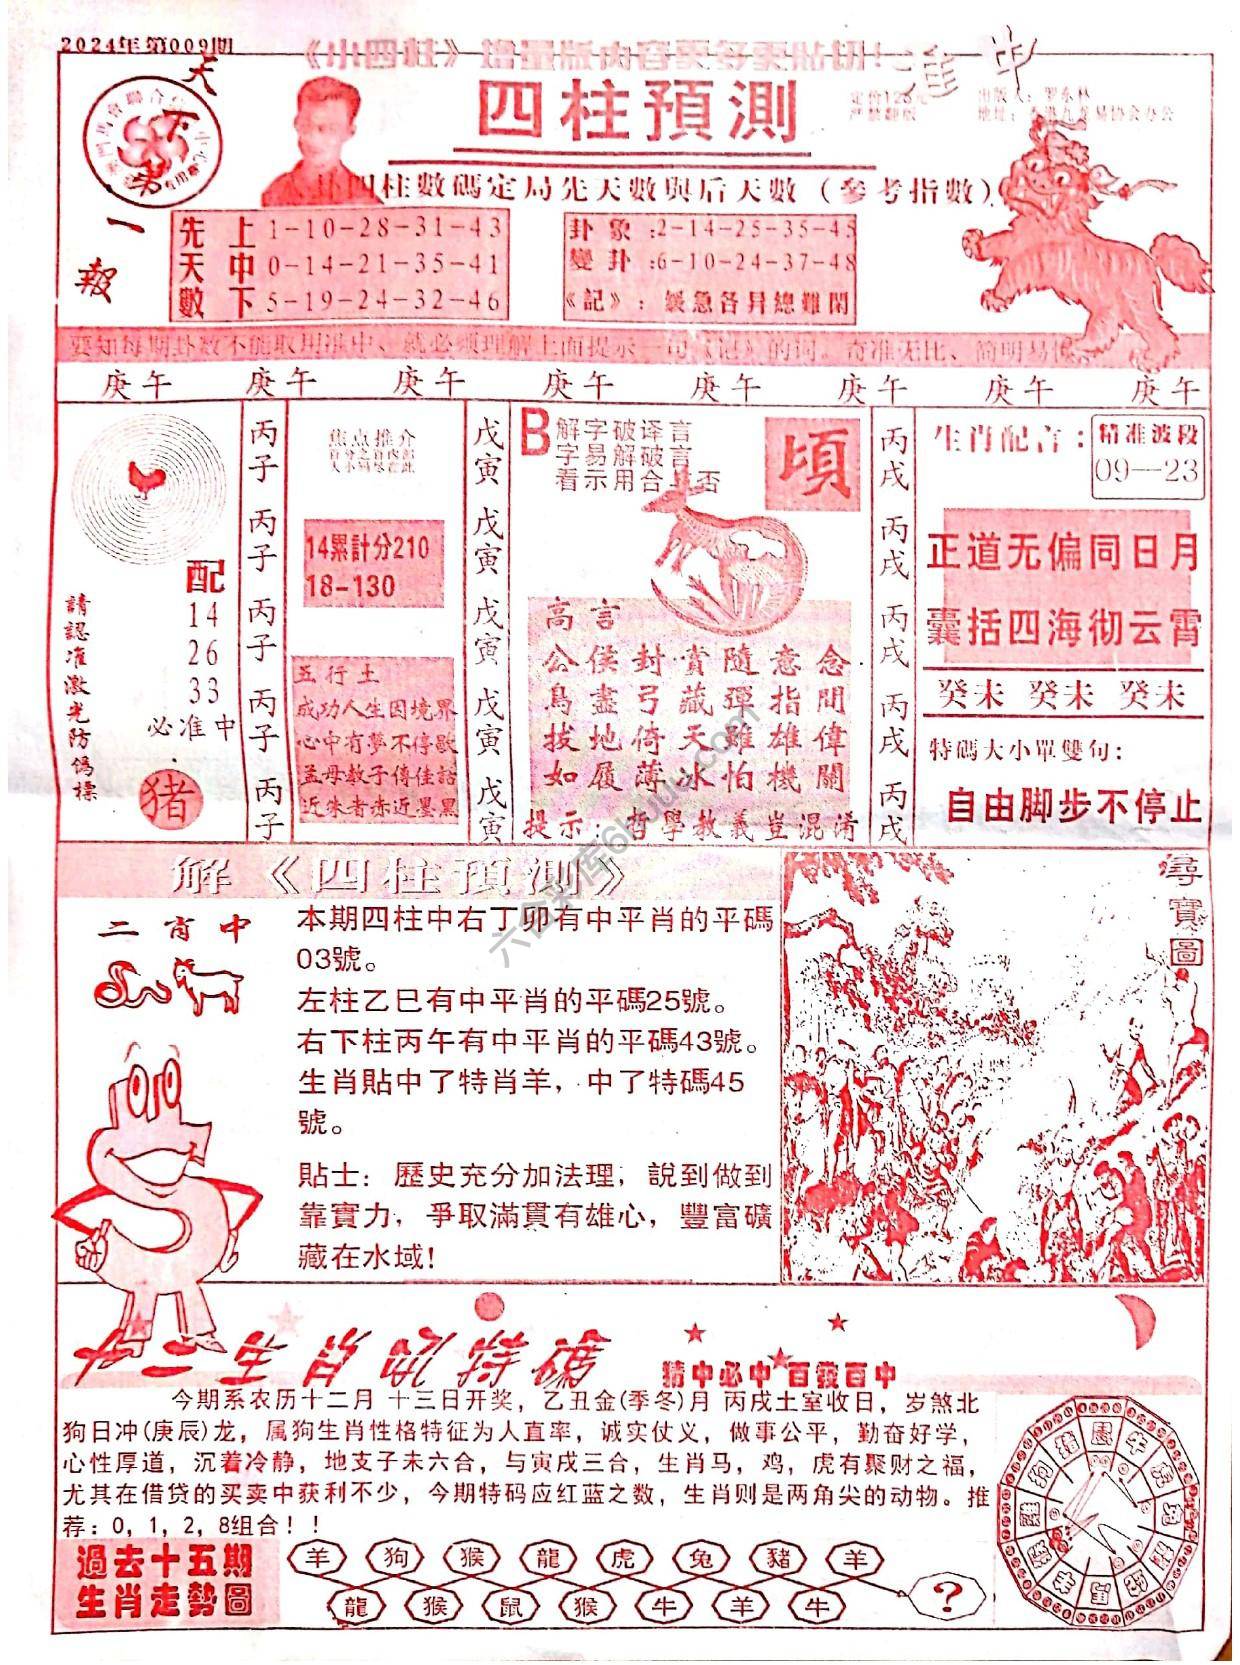 2024年第009期
《小四柱》增量版内容更多更贴切!
進中
天下第一報
四柱預測
定价128元
严禁翻版
出版人：罗永林
四柱數碼定局先天數與后天數(參考指數)
先天數
上 1-10-28-31-43
中 0-14-21-35-41
下 5-19-24-32-46
卦象:2-14-25-35-45
變卦:6-10-24-37-48
《記》: 緩急各异總難閑
要知每期卦数不能取用准中、就必须理解上面提示一句《记》的词。奇准无比、简明易
庚午 庚午 庚午 庚午 庚午 庚午 庚午 庚午
配
14
26
33
必准中
請認准激光防偽標
猪
丙子 丙子 丙子 丙子 丙子
焦点推介
百分之百内部
大小码尽在此
14累計分210
18-130
五行土
成功人生因境界
心中有夢不停歇
孟母教子傳佳話
近朱者赤近墨黑
戊寅 戊寅 戊寅 戊寅 戊寅
B
解字破译言
字易解破言
看示用合是否
頃
高言
公侯封賞隨意念
鳥盡弓藏彈指間
拔地倚天雖雄偉
如履薄冰怕機關
提示：哲學教義豈混淆
丙戌 丙戌 丙戌 丙戌 丙戌
生肖配言：
精准波段
09—23
正道无偏同日月
囊括四海彻云霄
癸未 癸未 癸未
特碼大小單雙句:
自由脚步不停止
解《四柱預測》
二肖中
本期四柱中右丁卯有中平肖的平碼
03號。
左柱乙巳有中平肖的平碼25號。
右下柱丙午有中平肖的平碼43號。
生肖貼中了特肖羊，中了特碼45
號。
貼士：歷史充分加法理，說到做到
靠實力，爭取滿貫有雄心，豐富礦
藏在水域!
尋寶圖
十二生肖吼特碼
猜中必中百發百中
今期系农历十二月 十三日开奖，乙丑金(季冬)月 丙戌土室收日，岁煞北
狗日冲(庚辰)龙，属狗生肖性格特征为人直率，诚实仗义，做事公平，勤奋好学，
心性厚道，沉着冷静，地支子未六合，与寅戌三合，生肖马，鸡，虎有聚财之福，
尤其在借贷的买卖中获利不少，今期特码应红蓝之数，生肖则是两角尖的动物。推
荐：0，1，2，8组合！！
過去十五期
生肖走勢圖
羊 狗 猴 龍 虎 兔 豬 羊
龍 猴 鼠 猴 牛 羊 牛
?
六合彩库6huu.com